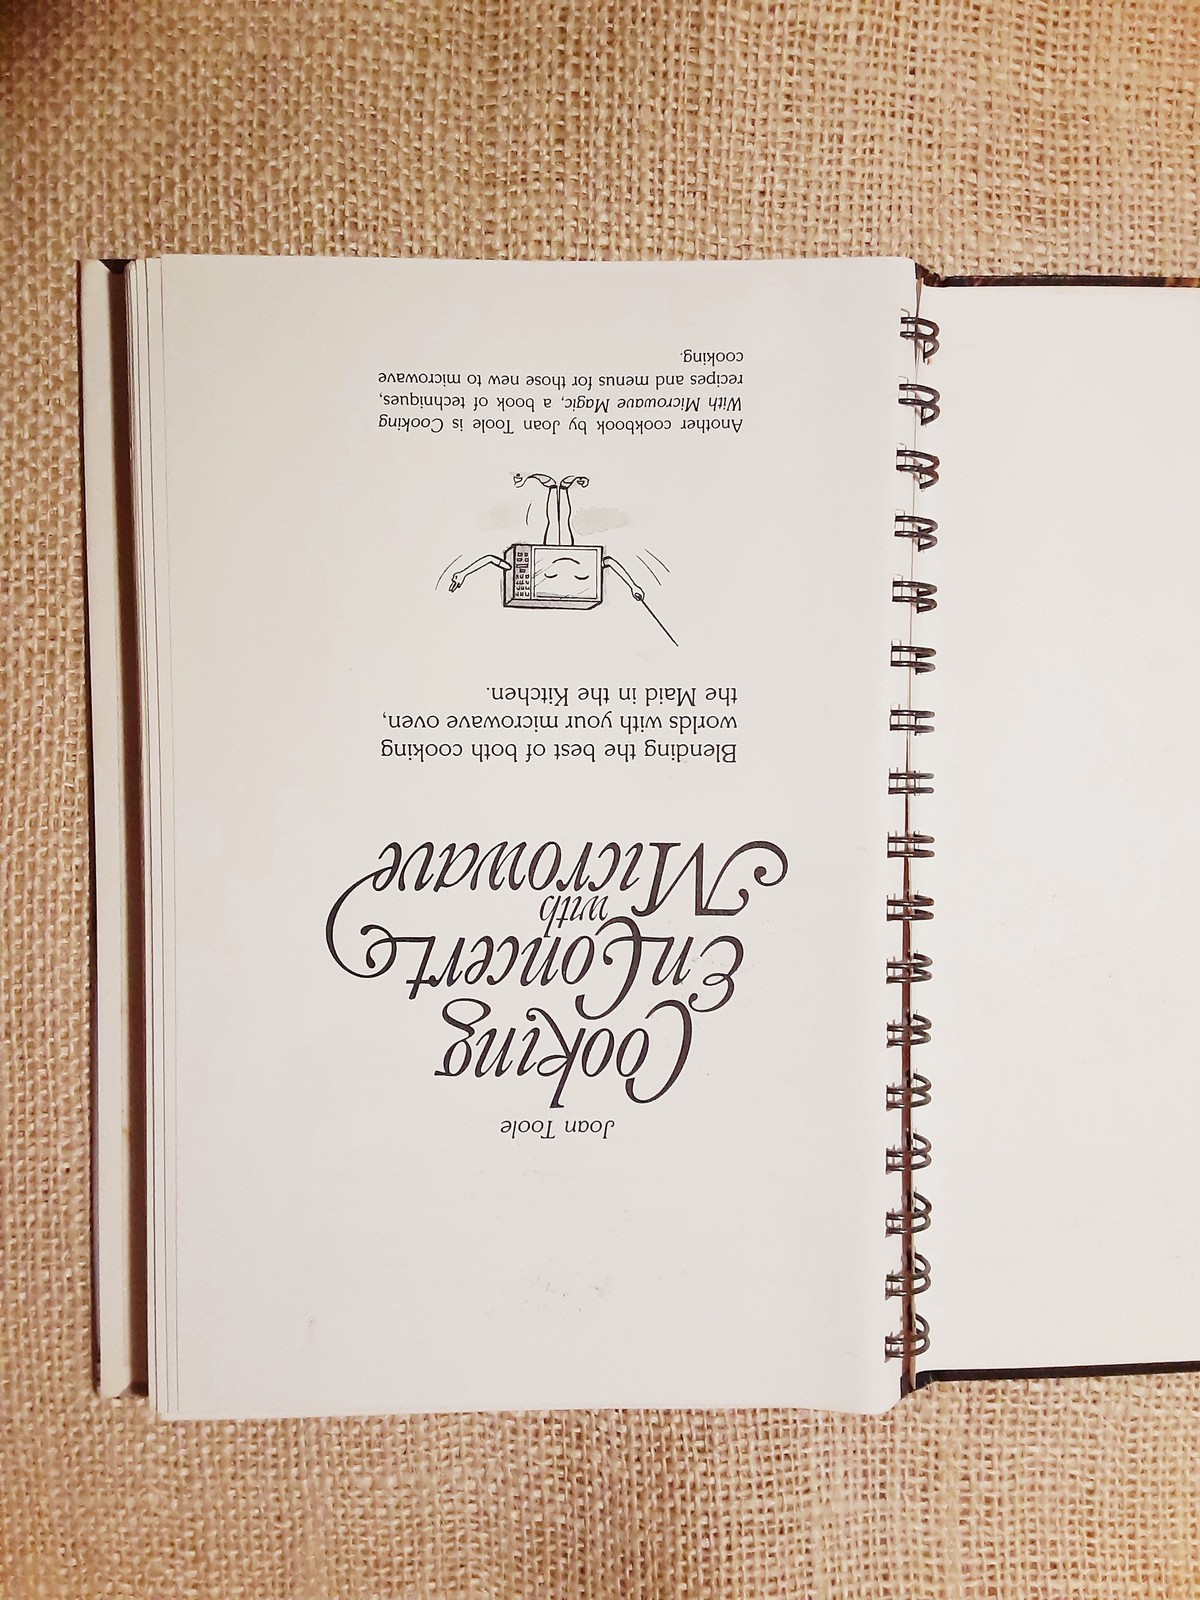 Joan Toole
Cooking
En Concert
with
Microwave
Blending the best of both cooking
worlds with your microwave oven,
the Maid in the Kitchen.
Another cookbook by Joan Toole is Cooking
With Microwave Magic, a book of techniques,
recipes and menus for those new to microwave
cooking.